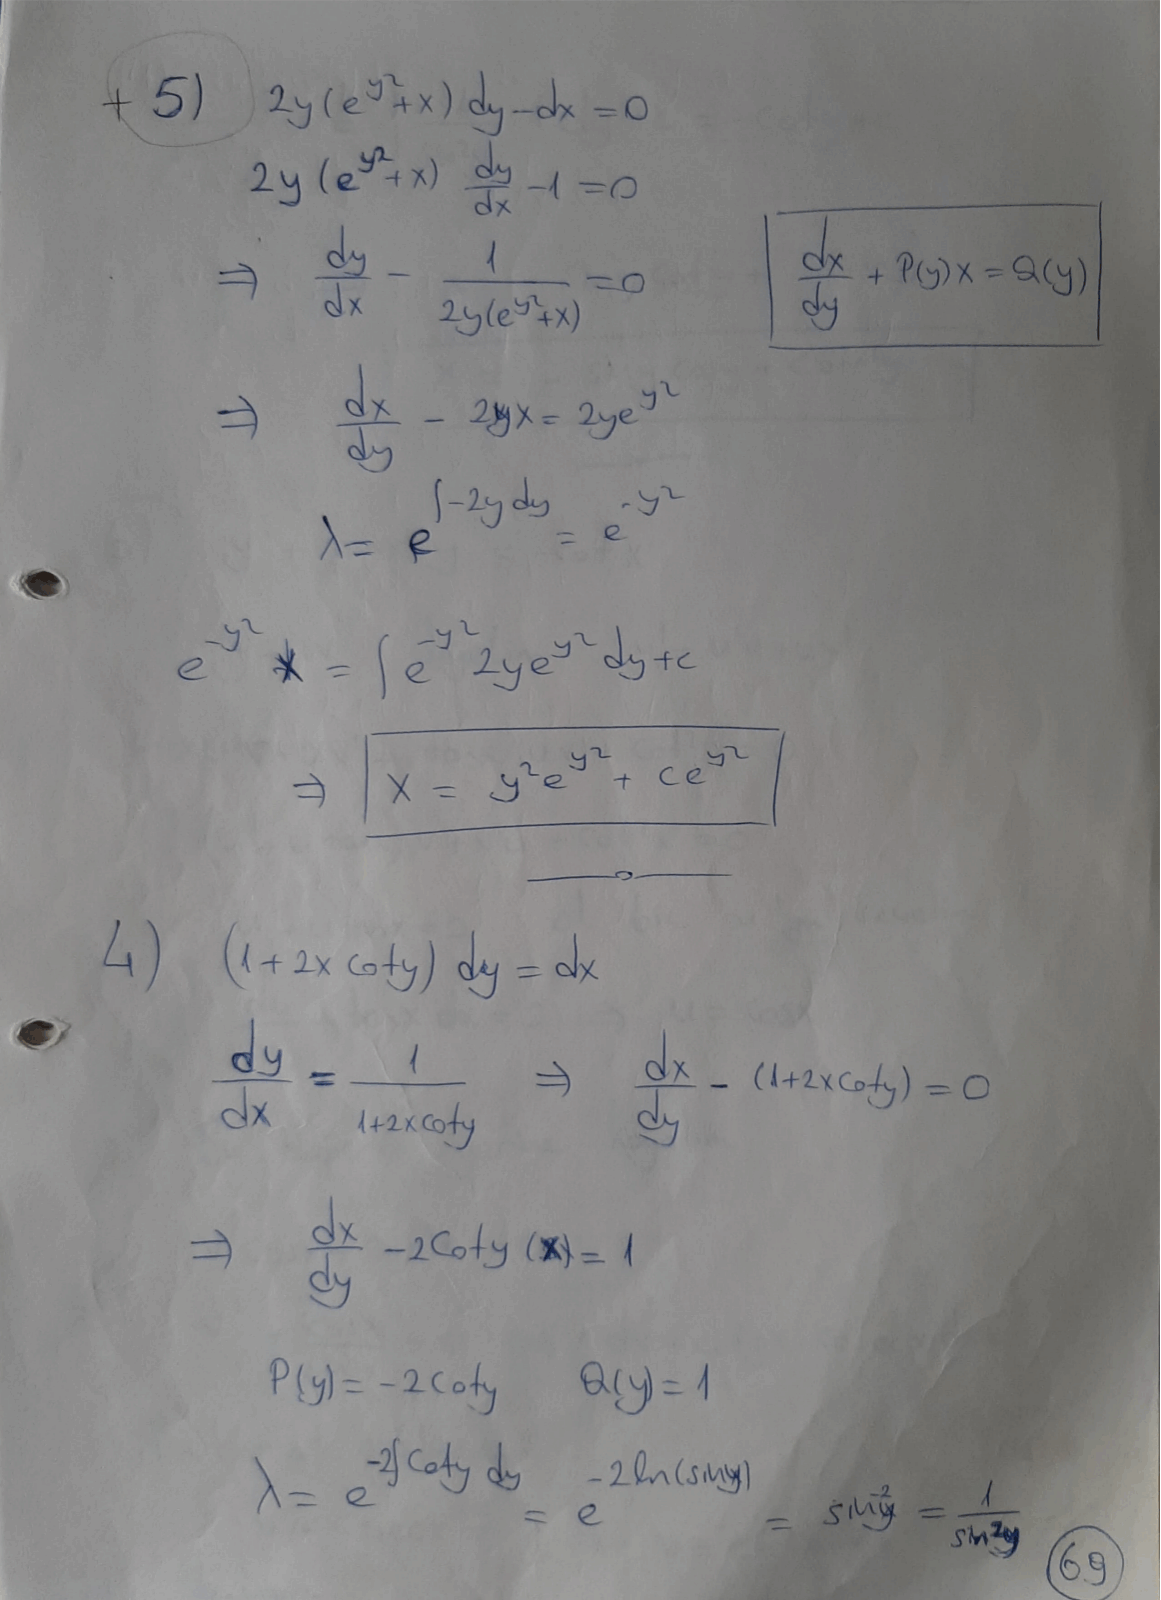 + 5) 2y(e^{y²}+x) dy-dx=0
2y(e^{y²}+x) dy/dx -1=0
⇒ dy/dx - 1/(2y(e^{y²}+x)) =0
dx/dy + P(y)x = Q(y)
⇒ dx/dy - 2yx = 2ye^{y²}
λ= e^{∫-2y dy} = e^{-y²}
e^{-y²} x = ∫e^{-y²} 2ye^{y²} dy+c
⇒ x = y²e^{y²} + ce^{y²}
4) (1+2x coty) dy = dx
dy/dx = 1/(1+2xcoty) ⇒ dx/dy - (1+2xcoty) = 0
⇒ dx/dy -2Coty (x) = 1
P(y)= -2Coty Q(y)=1
λ= e^{-2∫Coty dy} = e^{-2ln(siny)} = siny^{-2} = 1/sin²y
69